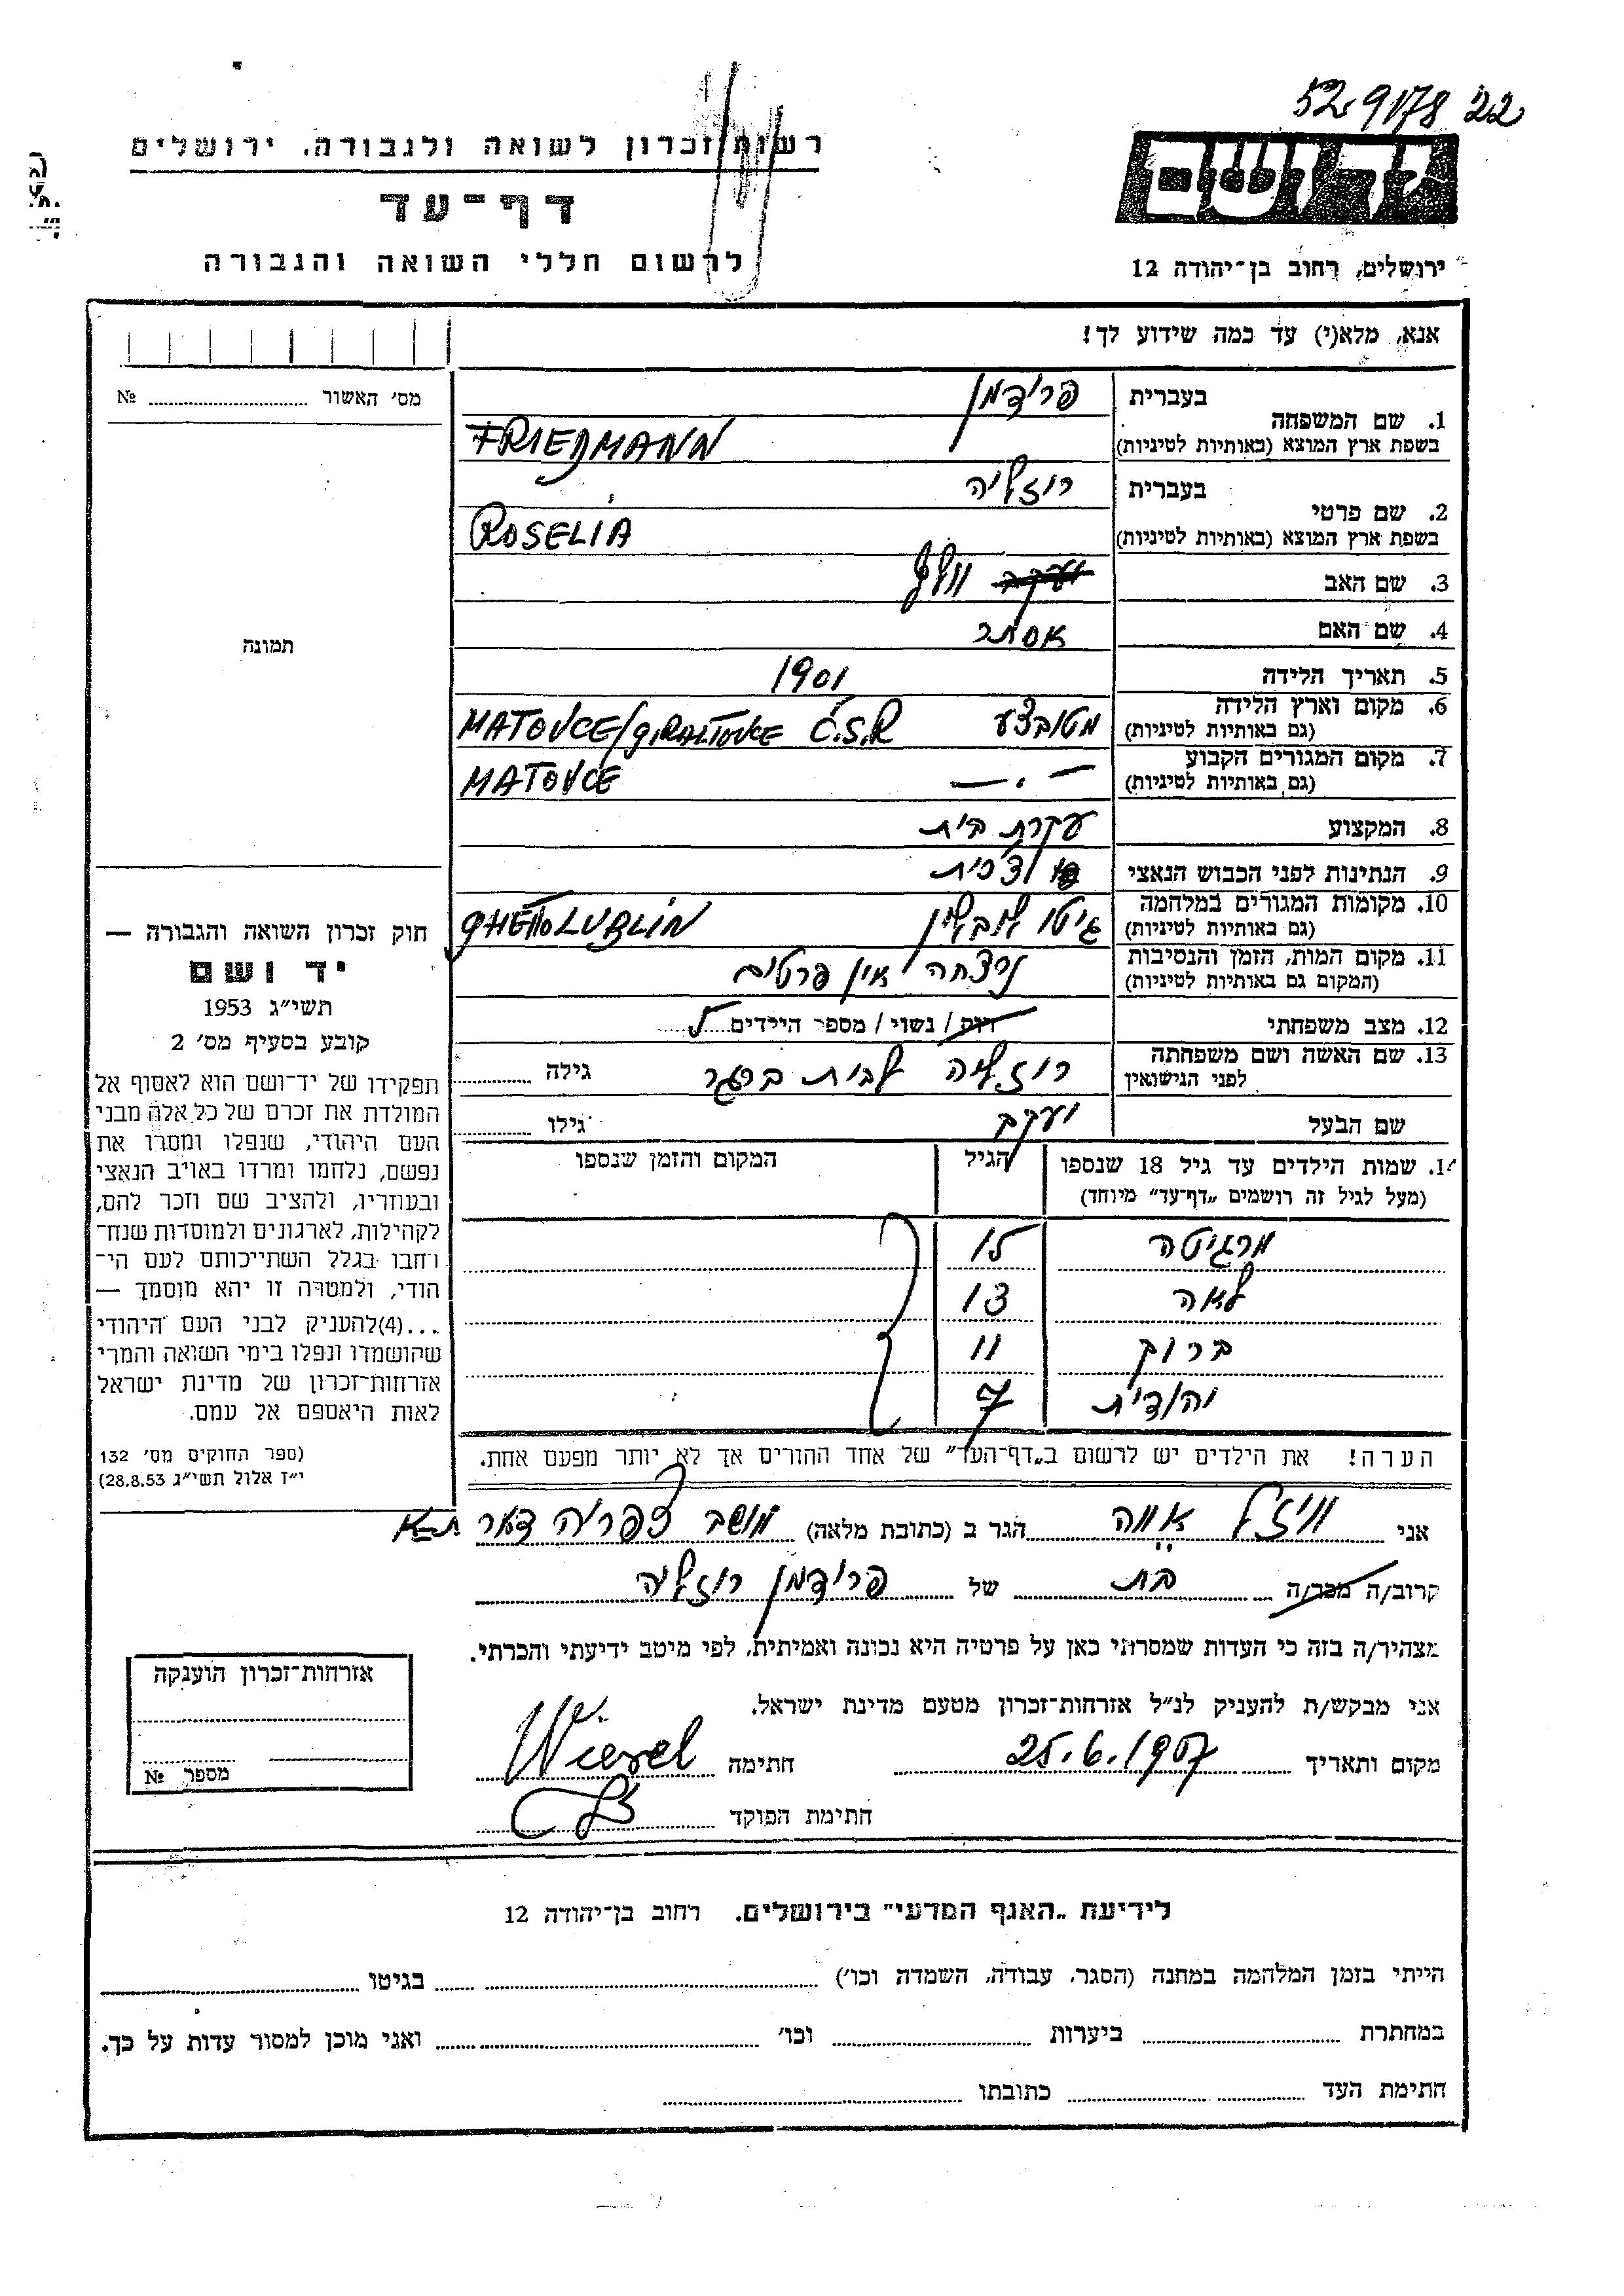 52 9178 22
ידושם
ירושלים, רחוב בן־יהודה 12
רשות זכרון לשואה ולגבורה, ירושלים
דף־עד
לרשום חללי השואה והגבורה
אנא, מלא(י) עד כמה שידוע לך!
מס׳ האשור №
1. שם המשפחה בעברית פרידמן
בשפת ארץ המוצא (באותיות לטיניות) FRIEDMANN
2. שם פרטי בעברית רוזליה
בשפת ארץ המוצא (באותיות לטיניות) ROSELIA
3. שם האב יעקב וולף
4. שם האם אסתר
5. תאריך הלידה 1901
6. מקום וארץ הלידה מטובצע MATOVCE/GIRALTOVCE Č.S.R
(גם באותיות לטיניות)
7. מקום המגורים הקבוע
(גם באותיות לטיניות) MATOVCE
8. המקצוע עקרת בית
9. הנתינות לפני הכבוש הנאצי צ'כית
10. מקומות המגורים במלחמה גיטו לובלין GHETTO LUBLIN
(גם באותיות לטיניות)
11. מקום המות, הזמן והנסיבות נרצחה אין פרטים
(המקום גם באותיות לטיניות)
12. מצב משפחתי רוק / נשוי / מספר הילדים 5
13. שם האשה ושם משפחתה רוזליה לבית ברגר גילה
לפני הנישואין
שם הבעל יעקב גילו
14. שמות הילדים עד גיל 18 שנספו הגיל המקום והזמן שנספו
(מעל לגיל זה רושמים „דף־עד״ מיוחד)
מרגיטה 15
לאה 13
ברוך 11
יהודית 7
הערה! את הילדים יש לרשום ב„דף־העד״ של אחד ההורים אך לא יותר מפעם אחת.
תמונה
חוק זכרון השואה והגבורה —
יד ושם
תשי״ג 1953
קובע בסעיף מס׳ 2
תפקידו של יד־ושם הוא לאסוף אל
המולדת את זכרם של כל אלה מבני
העם היהודי, שנפלו ומסרו את
נפשם, נלחמו ומרדו באויב הנאצי
ובעוזריו, ולהציב שם וזכר להם,
לקהילות, לארגונים ולמוסדות שנח־
רחבו בגלל השתייכותם לעם הי־
הודי, ולמטרה זו יהא מוסמך —
...(4)להעניק לבני העם היהודי
שהושמדו ונפלו בימי השואה והמרי
אזרחות־זכרון של מדינת ישראל
לאות היאספם אל עמם.
(ספר החוקים מס׳ 132
י״ז אלול תשי״ג 28.8.53)
אני וויזל אווה הגר ב (כתובת מלאה) מושב צפריה דאר ת-א
קרוב/ה מכר/ה בת של פרידמן רוזליה
מצהיר/ה בזה כי העדות שמסרתי כאן על פרטיה היא נכונה ואמיתית, לפי מיטב ידיעתי והכרתי.
אני מבקש/ת להעניק לנ״ל אזרחות־זכרון מטעם מדינת ישראל.
מקום ותאריך 25.6.1957 חתימה Wiesel
חתימת הפוקד
אזרחות־זכרון הוענקה
מספר №
לידיעת „האגף המדעי״ בירושלים. רחוב בן־יהודה 12
הייתי בזמן המלחמה במחנה (הסגר, עבודה, השמדה וכו׳) בגיטו
במחתרת ביערות וכו׳ ואני מוכן למסור עדות על כך.
חתימת העד כתובתו